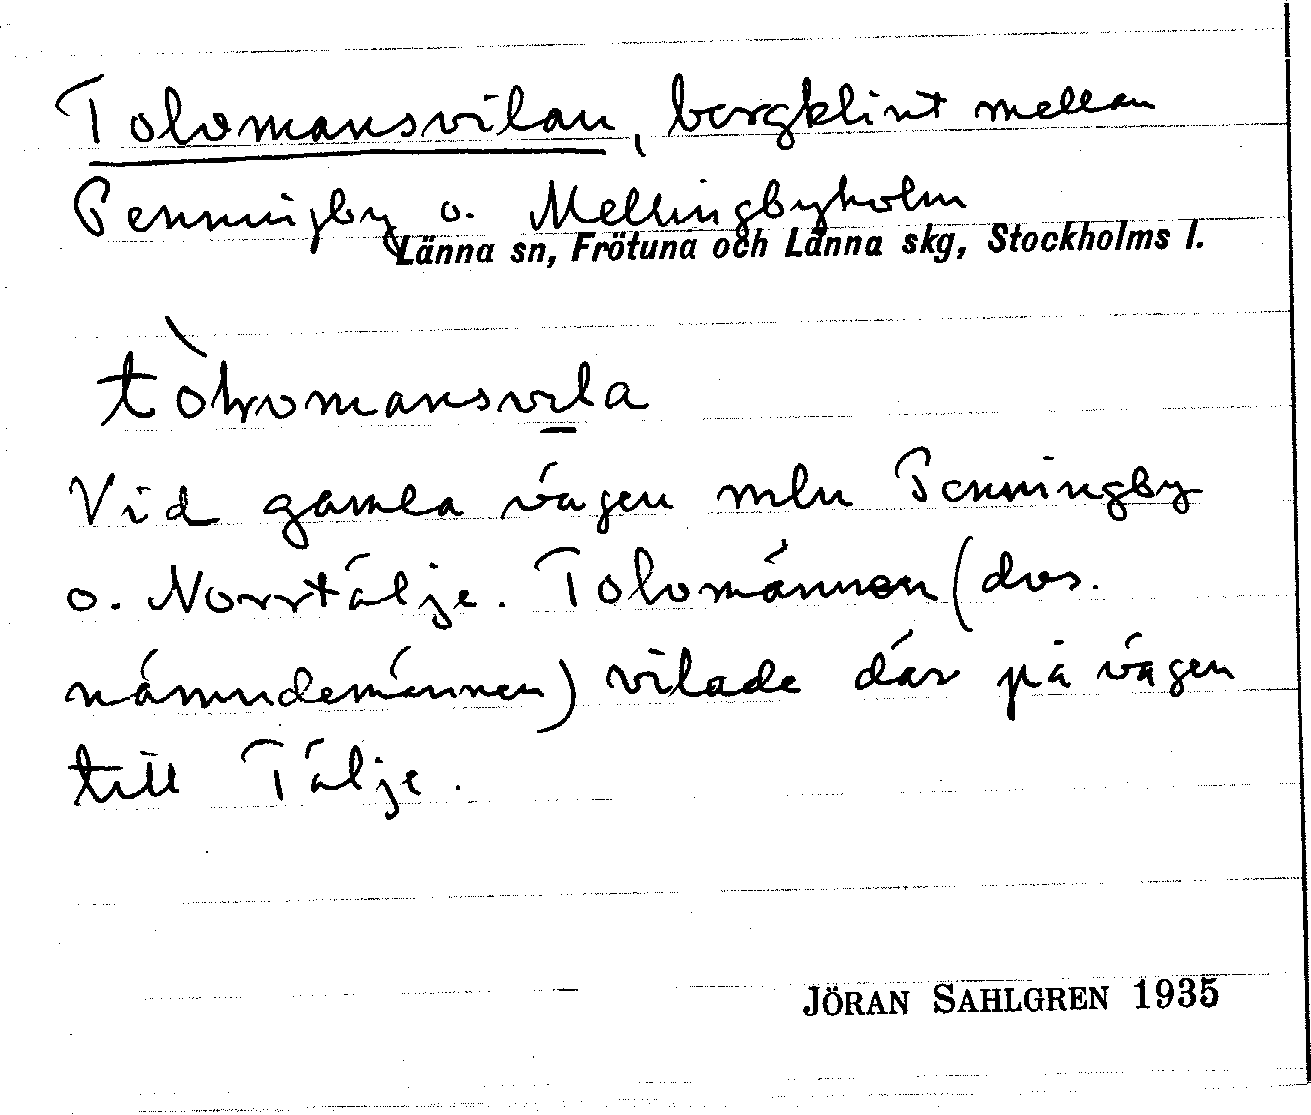 Tolomansvilan, bergklint mellan
Penningby o. Mellingbyholm
Länna sn, Frötuna och Länna skg, Stockholms l.
tòlomansvila
Vid gamla vägen mln Penningby
o. Norrtälje. Tolomännen (dvs.
nämndemännen) vilade där på vägen
till Tälje.
JÖRAN SAHLGREN 1935